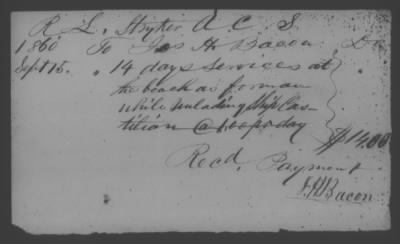 R L. Stryker A C S
1860 To Jas H. Bacon Dr
Sept 15. " 14 days services at
the beach as forman
while unlading Ship Cas-
tilian @ 1.00 pr day $14.00
Recd. Payment
J.H. Bacon